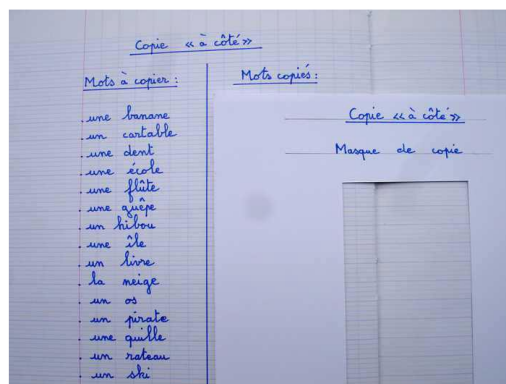 Copie « à côté »
Mots à copier :
une banane
un cartable
une dent
une école
une flûte
une guêpe
un hibou
une île
un livre
la neige
un os
un pirate
une quille
un rateau
un ski
Mots copiés :
Copie « à côté »
Masque de copie